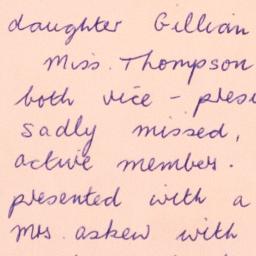 daughter Gillian
Miss. Thompson
both vice - pres
Sadly missed,
active member.
presented with a
Mrs. askew with